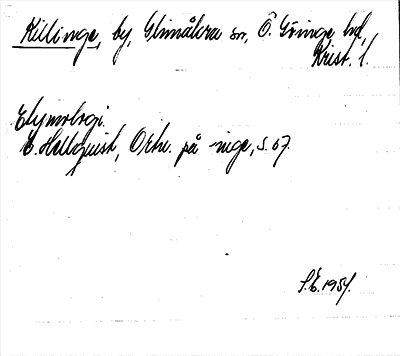 Killinge, by, Glimåkra sn, Ö. Göinge hd,
Krist. l.
Etymologi.
E. Hellquist, Ortn. på -inge, s. 67.
S.E. 1954.